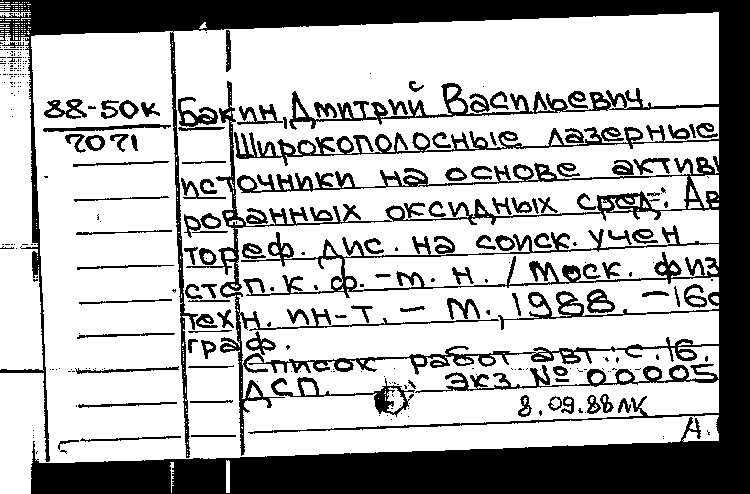 88-50к
7071
Бакин, Дмитрий Васильевич.
Широкополосные лазерные
источники на основе активи
рованных оксидных сред: Ав
тореф. дис. на соиск. учен.
степ. к. ф.-м. н. / Моск. физ
техн. ин-т. - М., 1988. - 16с
граф.
Список работ авт.: с. 16.
ДСП. экз. № 00005
8.09.88 лк
А.